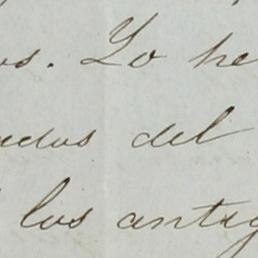 os. Yo he
ados del
los antig